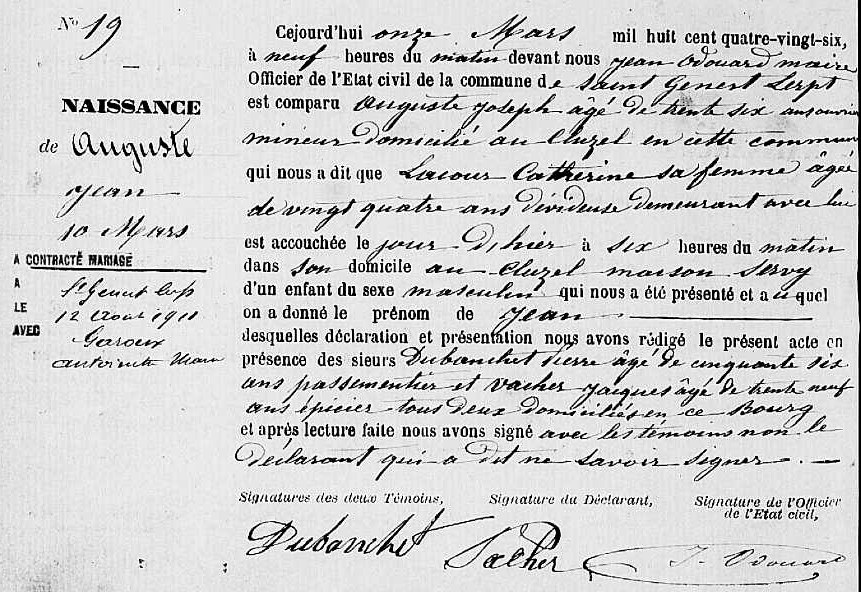 No 19
NAISSANCE
de Auguste
Jean
10 Mars
A CONTRACTÉ MARIAGE
A St Genest Lerp
LE 12 Aout 1911
AVEC Garoux
Antoinette Marie
Cejourd'hui onze Mars mil huit cent quatre-vingt-six,
à neuf heures du matin devant nous Jean Odouard maire
Officier de l'Etat civil de la commune de Saint Genest Lerpt
est comparu Auguste Joseph âgé de trente six ans ouvrier
mineur domicilié au Cluzel en cette commune
qui nous a dit que Lacour Catherine sa femme âgée
de vingt quatre ans dévideuse demeurant avec lui
est accouchée le jour d'hier à six heures du matin
dans son domicile au Cluzel maison Servy
d'un enfant du sexe masculin qui nous a été présenté et auquel
on a donné le prénom de Jean
desquelles déclaration et présentation nous avons rédigé le présent acte en
présence des sieurs Dubanchet Pierre âgé de cinquante six
ans passementier et Vacher Jacques âgé de trente neuf
ans épicier tous deux domiciliés en ce Bourg
et après lecture faite nous avons signé avec les témoins non le
déclarant qui a dit ne savoir signer.
Signatures des deux Témoins, Signature du Déclarant, Signature de l'Officier
de l'Etat civil,
Dubanchet Vacher J. Odouard